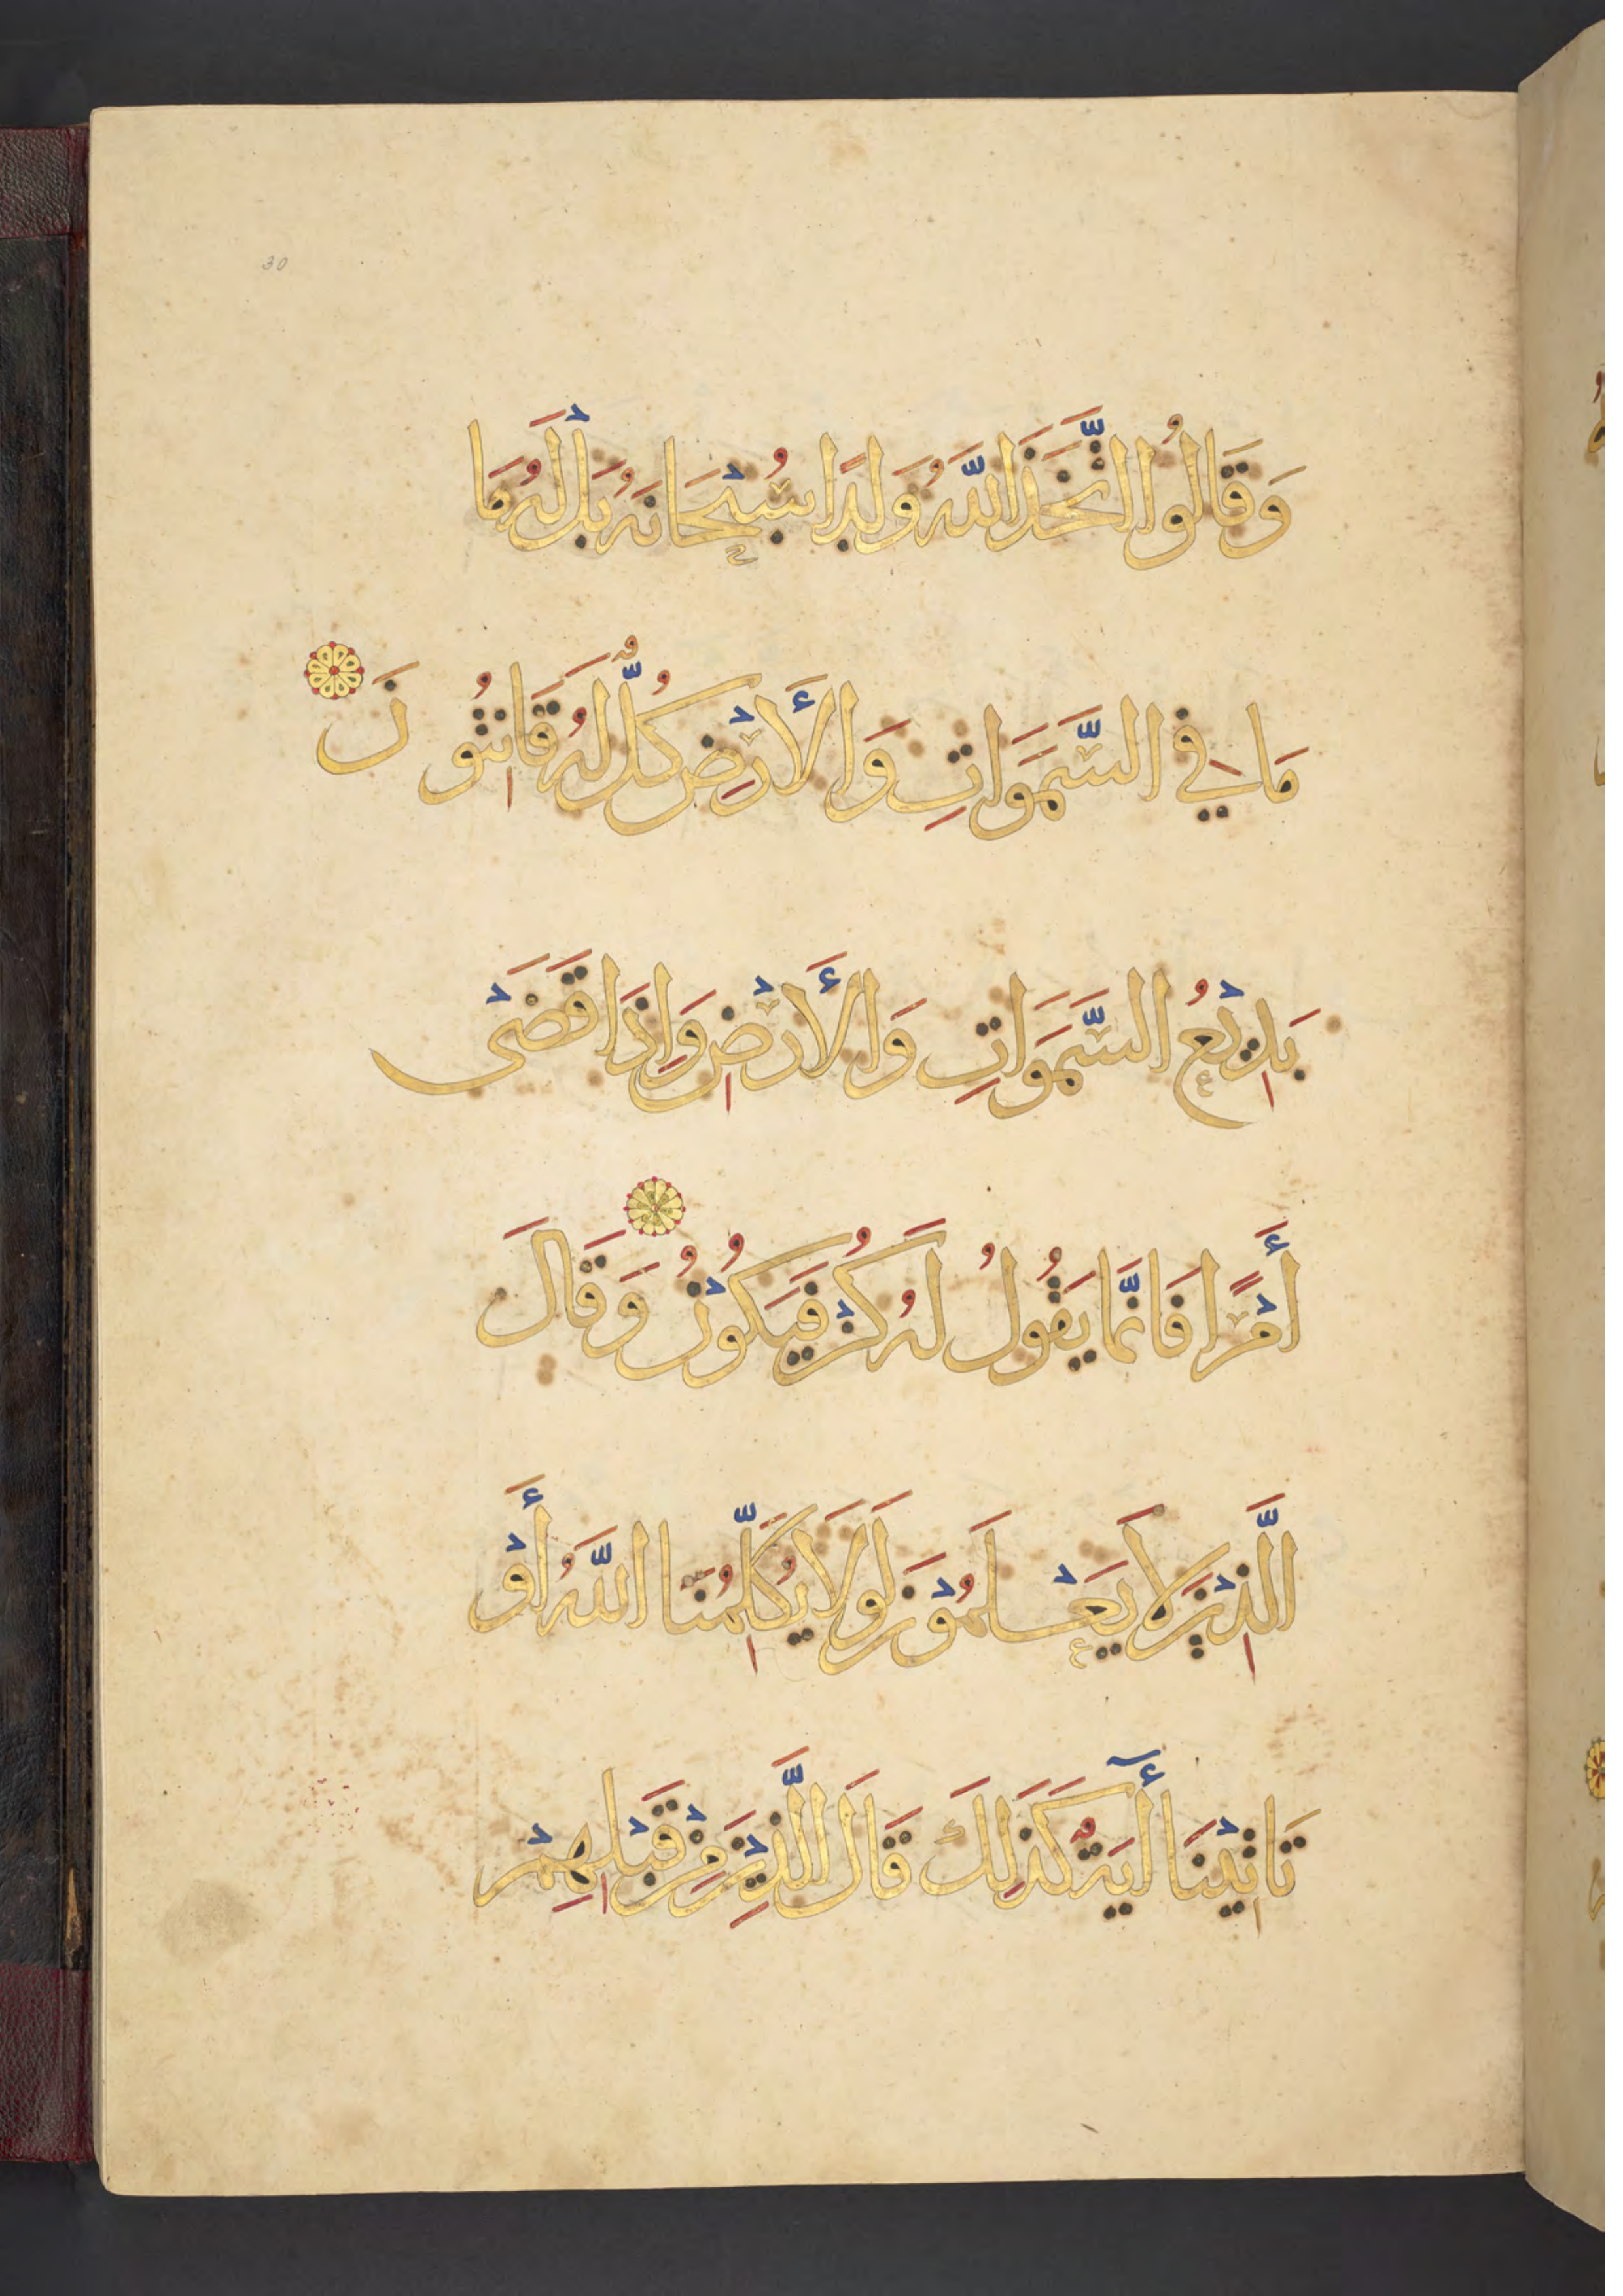 30
وَقَالُوا اتَّخَذَ اللَّهُ وَلَدًا سُبْحَانَهُ بَلْ لَهُ مَا
مَا فِي السَّمَوَاتِ وَالْأَرْضِ كُلٌّ لَهُ قَانِتُونَ
بَدِيْعُ السَّمَوَاتِ وَالْأَرْضِ وَإِذَا قَضَىْ
أَمْرًا فَانَّمَا يَقُولُ لَهُ كُنْ فَيَكُوْنُ وَقَالَ
الَّذِيْنَ لَا يَعْلَمُوْنَ لَوَلَا يُكَلِّمُنَا اللَّهُ أَوْ
تَاتِيْنَا أَيَةٌ كَذَلِكَ قَالَ الَّذِيْنَ مِنْ قَبْلِهِمْ